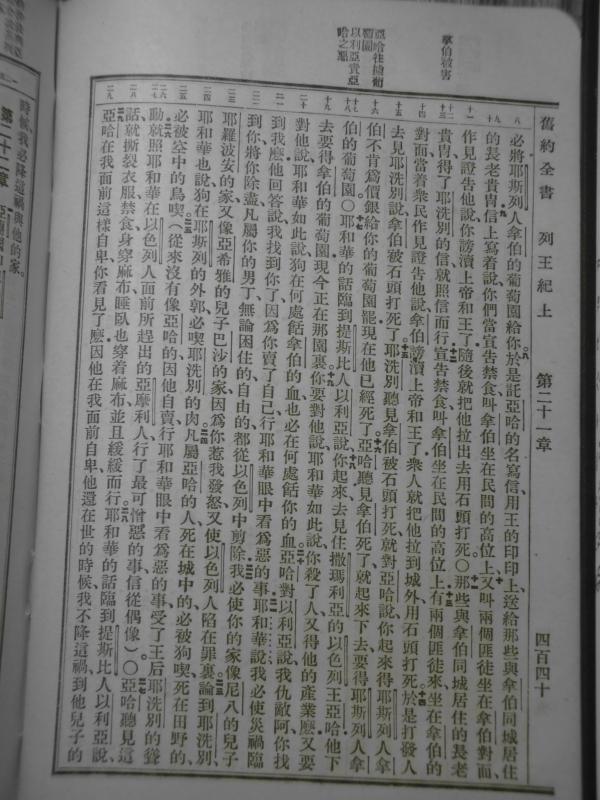 舊約全書 列王紀上 第二十一章 四百四十
拿伯被害
亞哈往據葡萄園
以利亞責亞哈之惡
必將耶斯列人拿伯的葡萄園給你於是託亞哈的名寫信用王的印印上送給那些與拿伯同城居住
的長老貴冑信上寫着說你們當宣告禁食叫拿伯坐在民間的高位上又叫兩個匪徒坐在拿伯對面
作見證告他說你謗瀆上帝和王了隨後就把他拉出去用石頭打死〇那些與拿伯同城居住的長老
貴冑得了耶洗別的信就照信而行宣告禁食叫拿伯坐在民間的高位上有兩個匪徒來坐在拿伯的
對面當着衆民作見證告他說拿伯謗瀆上帝和王了衆人就把他拉到城外用石頭打死於是打發人
去見耶洗別說拿伯被石頭打死了耶洗別聽見拿伯被石頭打死就對亞哈說你起來得耶斯列人拿
伯不肯爲價銀給你的葡萄園罷現在他已經死了亞哈聽見拿伯死了就起來下去要得耶斯列人拿
伯的葡萄園〇耶和華的話臨到提斯比人以利亞說你起來去見住撒瑪利亞的以色列王亞哈他下
去要得拿伯的葡萄園現今正在那園裏你要對他說耶和華如此說你殺了人又得他的產業麽又要
對他說耶和華如此說狗在何處餂拿伯的血也必在何處餂你的血亞哈對以利亞說我仇敵阿你找
到我麽他回答說我找到你了因爲你賣了自己行耶和華眼中看爲惡的事耶和華說我必使災禍臨
到你將你除盡凡屬你的男丁無論困住的自由的都從以色列中剪除我必使你的家像尼八的兒子
耶羅波安的家又像亞希雅的兒子巴沙的家因爲你惹我發怒又使以色列人陷在罪裏論到耶洗別
耶和華也說狗在耶斯列的外郭必喫耶洗別的肉凡屬亞哈的人死在城中的必被狗喫死在田野的
必被空中的鳥喫（從來沒有像亞哈的因他自賣行耶和華眼中看爲惡的事受了王后耶洗別的聳
動就照耶和華在以色列人面前所趕出的亞摩利人行了最可憎惡的事信從偶像）〇亞哈聽見這
話就撕裂衣服禁食身穿麻布睡臥也穿着麻布並且緩緩而行耶和華的話臨到提斯比人以利亞說
亞哈在我面前這樣自卑你看見了麽因他在我面前自卑他還在世的時候我不降這禍到他兒子的
時候我必降這禍與他的家
第二十二章